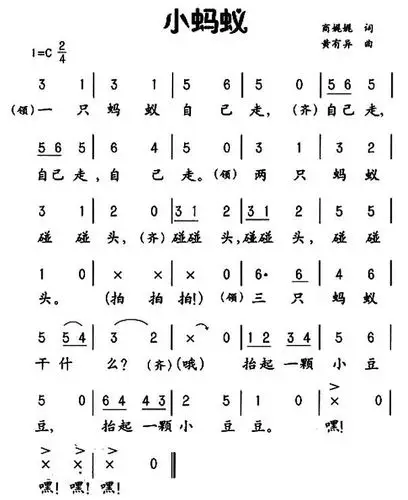 小蚂蚁
商娓娓 词
1=C 2/4 黄有异 曲
3 1 | 3 1 | 5 6 | 5 0 | 5 6 5 |
(领)一只蚂蚁自己走,(齐)自己走,
5 6 5 | 6 4 | 5 0 | 3 1 | 3 2 |
自己走,自己走。(领)两只蚂蚁
3 1 | 2 0 | 3 1 2 | 3 1 2 | 5 5 |
碰碰头,(齐)碰碰头,碰碰头,碰碰
1 0 | × × | × 0 | 6· 6 | 4 6 |
头。(拍拍拍!)(领)三只蚂蚁
5 5 4 | 3 2 | × 0 | 1 2 3 4 | 5 6 |
干什么?(齐)(哦)抬起一颗小豆
5 0 | 6 4 4 3 | 2 5 | 1 0 | × 0 |
豆,抬起一颗小豆豆。嘿!
× × | × 0 ‖
嘿!嘿!嘿!